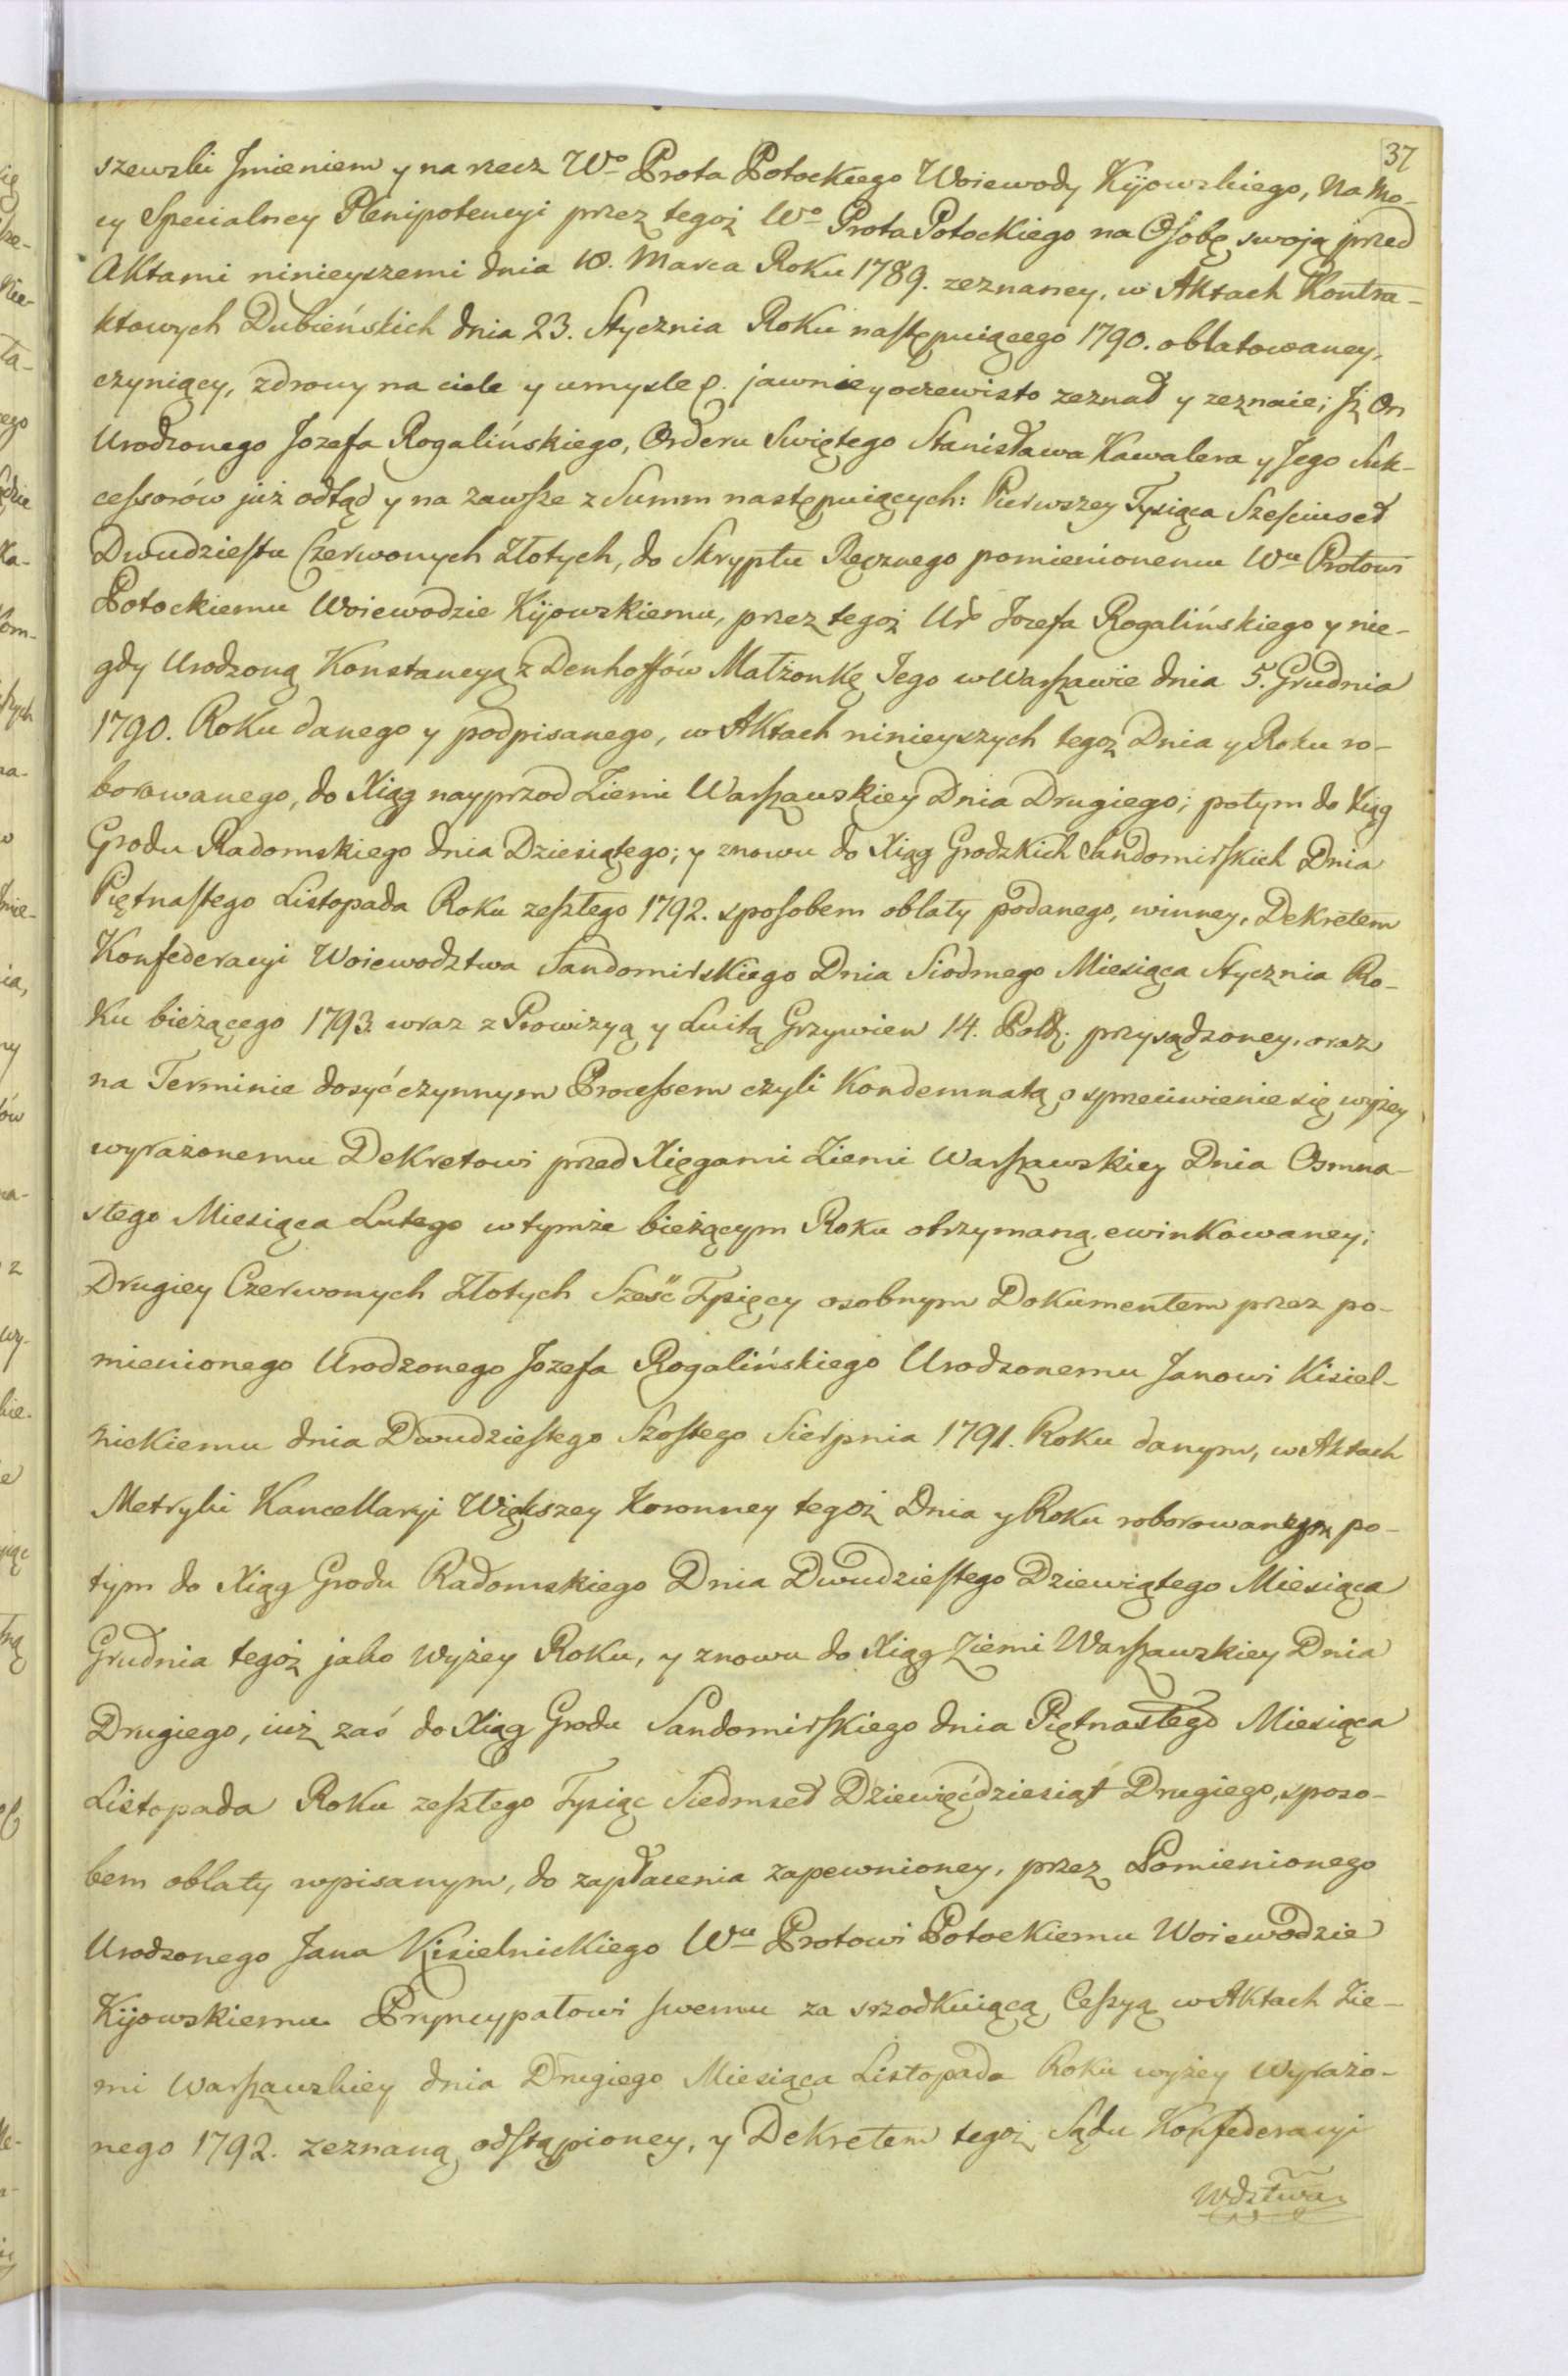 37
szewski Jmieniem y na rzecz Wo Prota Potockiego Woiewody Kijowskiego, Na Mo-
cy Specialney Plenipotencyi przez tegoż Wo Prota Potockiego na Osobę swoią przed
Aktami ninieyszemi dnia 18. Marca Roku 1789. zeznaney, w Aktach Kontra-
ktowych Dubieńskich dnia 23. Stycznia Roku następuiącego 1790. oblatowaney,
czyniący, zdrowy na ciele y umysle. jawnie y oczewisto zeznał y zeznaie; Jż On
Urodzonego Jozefa Rogalińskiego, Orderu Swiętego Stanisława Kawalera y Jego Suk-
cessorów już odtąd y na zawsze z Summ następuiących: Pierwszey Tysiąca Sześciuset
Dwudziestu Czerwonych Złotych, do Skryptu Ręcznego pomienionemu Wu Protowi
Potockiemu Woiewodzie Kijowskiemu, przez tegoż Uro Jozefa Rogalińskiego y nie-
gdy Urodzoną Konstancyą z Denhoffów Małżonkę Jego w Warszawie dnia 5. Grudnia
1790. Roku danego y podpisanego, w Aktach ninieyszych tegoż Dnia y Roku ro-
borowanego, do Xiąg nayprzod Ziemi Warszawskiey Dnia Drugiego; potym do Xiąg
Grodu Radomskiego dnia Dziesiątego; y znowu do Xiąg Grodzkich Sandomirskich Dnia
Piętnastego Listopada Roku zeszłego 1792. sposobem oblaty podanego, winney, Dekretem
Konfederacyi Woiewodztwa Sandomirskiego Dnia Siodmego Miesiąca Stycznia Ro-
ku bieżącego 1793. wraz z Prowizyą y Luitą Grzywien 14. Polz: przysądzoney, oraz
na Terminie dosyć czynnym Processem czyli Kondemnatą o sprzeciwienie się wyżey
wyrażonemu Dekretowi przed Xięgami Ziemi Warszawskiey Dnia Osmna-
stego Miesiąca Lutego w tymże bieżącym Roku otrzymaną, ewinkowaney;
Drugiey Czerwonych Złotych Sześć Tysięcy osobnym Dokumentem przez po-
mienionego Urodzonego Jozefa Rogalińskiego Urodzonemu Janowi Kisiel-
nickiemu dnia Dwudziestego Szostego Sierpnia 1791. Roku danym, w Aktach
Metryki Kancellaryi Większey Koronney tegoż Dnia y Roku roborowanym po-
tym do Xiąg Grodu Radomskiego Dnia Dwudziestego Dziewiątego Miesiąca
Grudnia tegoż jako wyżey Roku, y znowu do Xiąg Ziemi Warszawskiey Dnia
Drugiego, iuż zaś do Xiąg Grodu Sandomirskiego dnia Piętnastego Miesiąca
Listopada Roku zeszłego Tysiąc Siedmset Dziewięćdziesiąt Drugiego, sposo-
bem oblaty wpisanym, do zapłacenia zapewnioney, przez Pomienionego
Urodzonego Jana Kisielnickiego Wu Protowi Potockiemu Woiewodzie
Kijowskiemu Pryncypałowi swemu za srzodkuiącą Cessyą w Aktach Zie-
mi Warszawskiey dnia Drugiego Miesiąca Listopada Roku wyżey Wyrażo-
nego 1792. zeznaną odstąpioney, y Dekretem tegoż Sądu Konfederacyi
Wdztwa